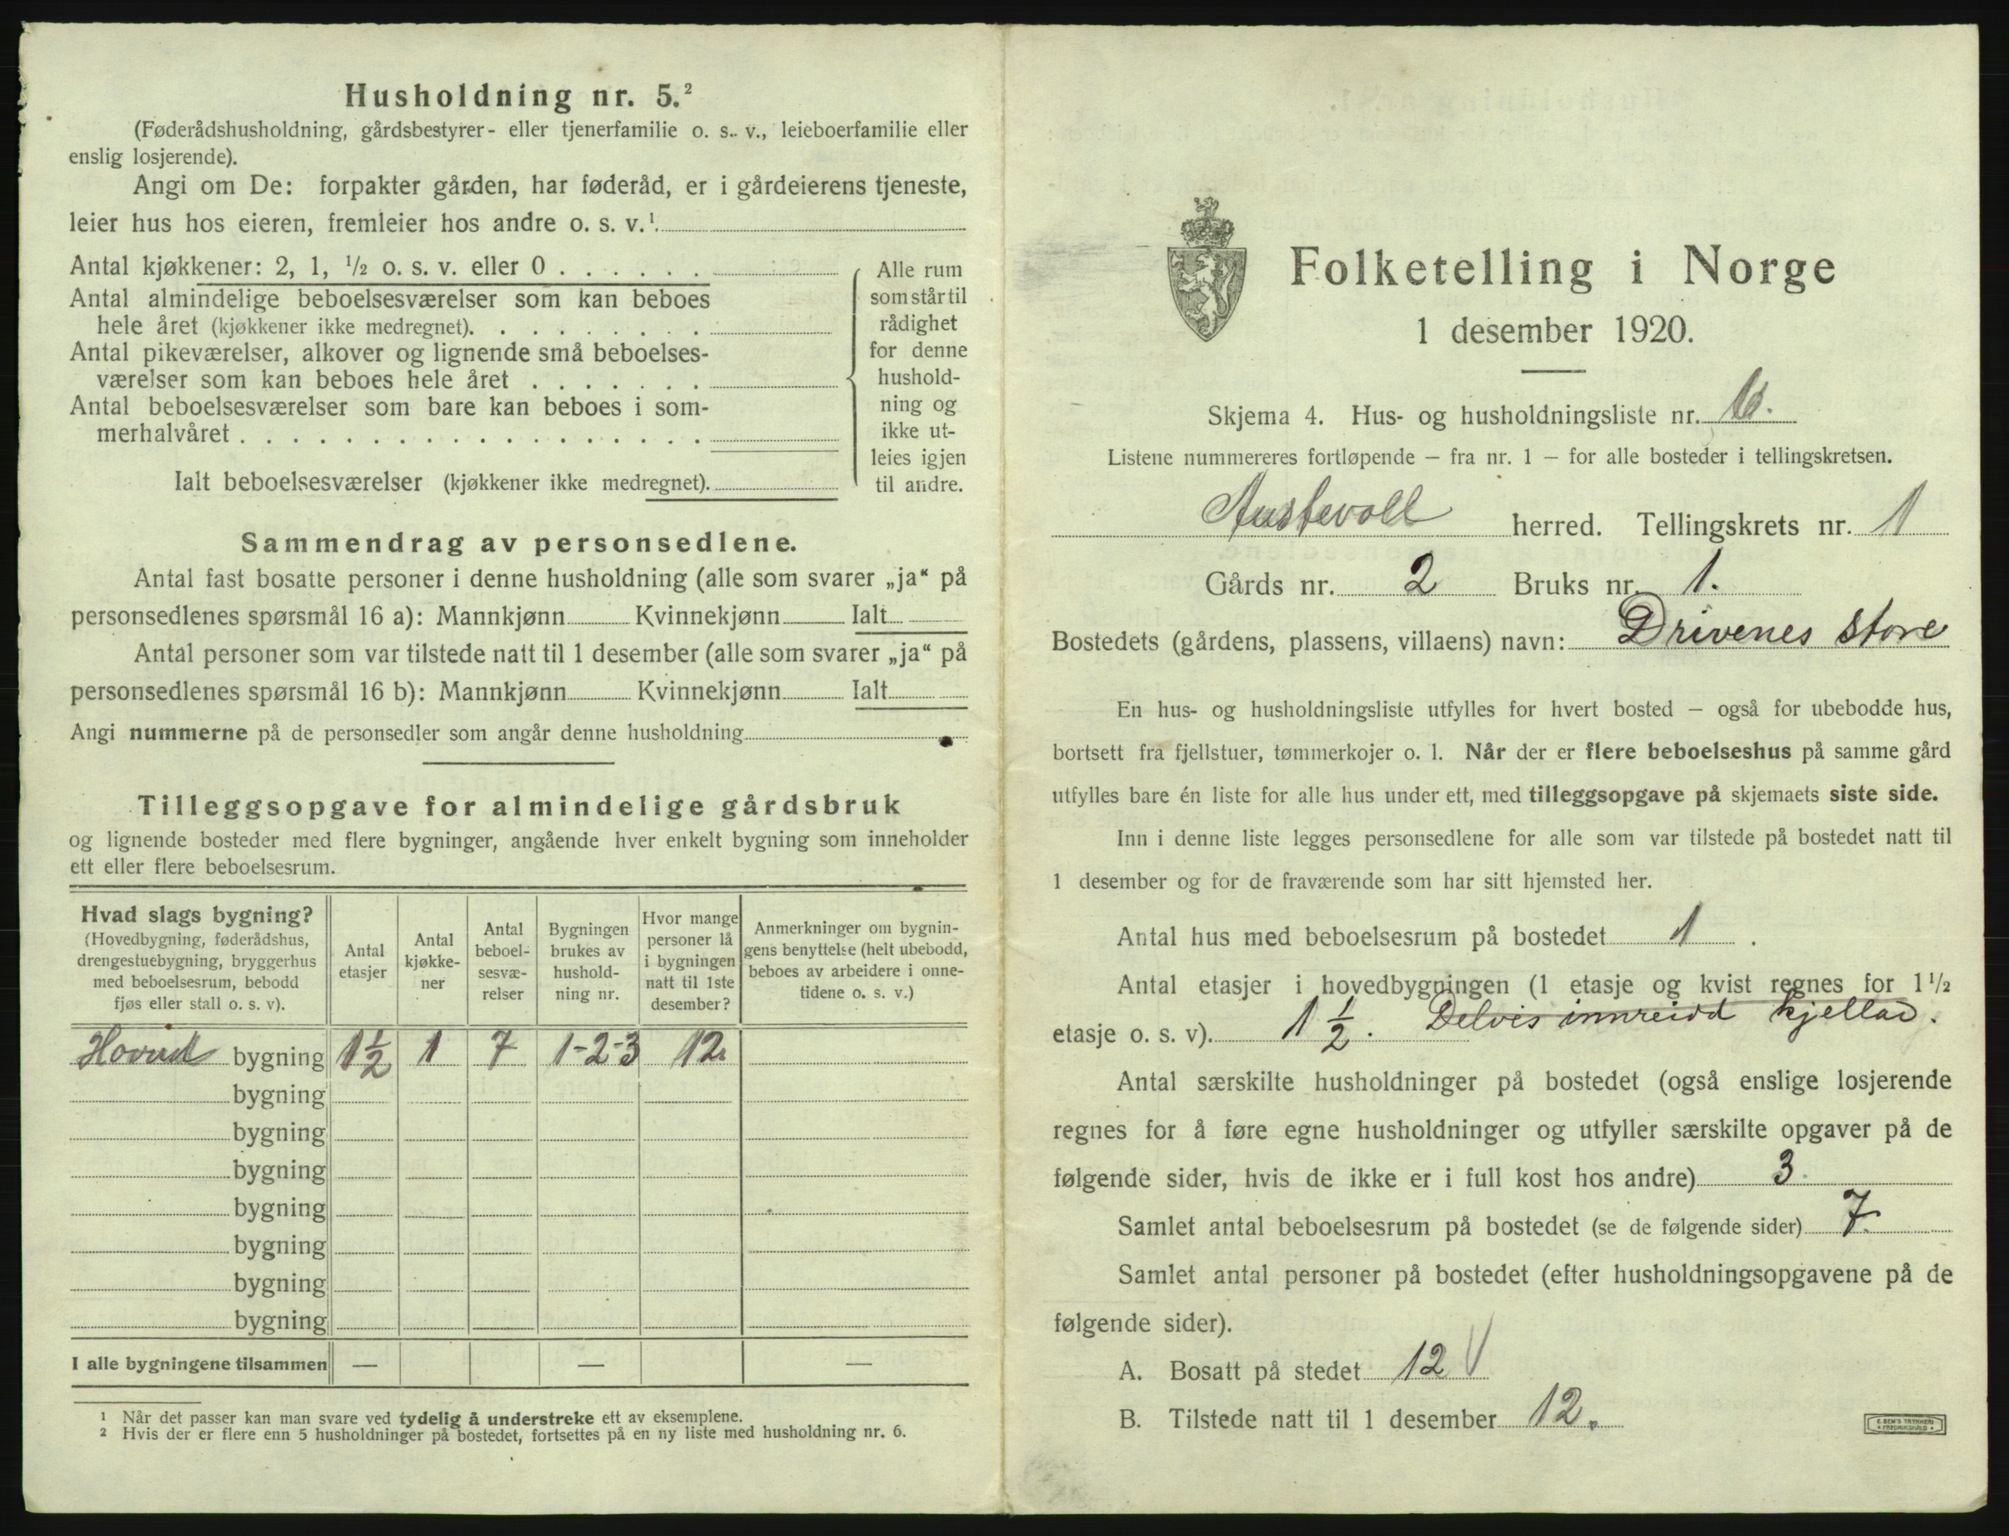 Husholdning nr. 5.²
(Føderådshusholdning, gårdsbestyrer- eller tjenerfamilie o. s. v., leieboerfamilie eller
enslig losjerende).
Angi om De: forpakter gården, har føderåd, er i gårdeierens tjeneste,
leier hus hos eieren, fremleier hos andre o. s. v.¹.
Antal kjøkkener: 2, 1, ½ o. s. v. eller 0 . . . . . .
Antal almindelige beboelsesværelser som kan beboes
hele året (kjøkkener ikke medregnet). . . . . . . . .
Antal pikeværelser, alkover og lignende små beboelses-
værelser som kan beboes hele året . . . . . . .
Antal beboelsesværelser som bare kan beboes i som-
merhalvåret . . . . . . . . . . . . . . . . . .
Ialt beboelsesværelser (kjøkkener ikke medregnet).
Alle rum
som står til
rådighet
for denne
hushold-
ning og
ikke ut-
leies igjen
til andre.
Sammendrag av personsedlene.
Antal fast bosatte personer i denne husholdning (alle som svarer „ja“ på
personsedlenes spørsmål 16 a): Mannkjønn Kvinnekjønn Ialt
Antal personer som var tilstede natt til 1 desember (alle som svarer „ja“ på
personsedlenes spørsmål 16 b): Mannkjønn Kvinnekjønn Ialt
Angi nummerne på de personsedler som angår denne husholdning
Tilleggsopgave for almindelige gårdsbruk
og lignende bosteder med flere bygninger, angående hver enkelt bygning som inneholder
ett eller flere beboelsesrum.
Hvad slags bygning?
(Hovedbygning, føderådshus,
drengestuebygning, bryggerhus
med beboelsesrum, bebodd
fjøs eller stall o. s. v).
Antal
etasjer
Antal
kjøkke-
ner
Antal
beboel-
sesvæ-
relser
Bygningen
brukes av
hushold-
ning nr.
Hvor mange
personer lå
i bygningen
natt til 1ste
desember?
Anmerkninger om bygnin-
gens benyttelse (helt ubebodd,
beboes av arbeidere i onne-
tidene o. s. v.)
Hovud bygning 1½ 1 7 1-2-3 12
bygning
bygning
bygning
bygning
bygning
bygning
bygning
I alle bygningene tilsammen — — —
¹ Når det passer kan man svare ved tydelig å understreke ett av eksemplene.
² Hvis der er flere enn 5 husholdninger på bostedet, fortsettes på en ny liste med husholdning nr. 6.
Folketelling i Norge
1 desember 1920.
Skjema 4. Hus- og husholdningsliste nr.
Listene nummereres fortløpende — fra nr. 1 — for alle bosteder i tellingskretsen.
Austevoll herred. Tellingskrets nr. 1
Gårds nr. 2 Bruks nr. 1.
Bostedets (gårdens, plassens, villaens) navn: Drivenes store
En hus- og husholdningsliste utfylles for hvert bosted — også for ubebodde hus,
bortsett fra fjellstuer, tømmerkojer o. l. Når der er flere beboelseshus på samme gård
utfylles bare én liste for alle hus under ett, med tilleggsopgave på skjemaets siste side.
Inn i denne liste legges personsedlene for alle som var tilstede på bostedet natt til
1 desember og for de fraværende som har sitt hjemsted her.
Antal hus med beboelsesrum på bostedet 1 .
Antal etasjer i hovedbygningen (1 etasje og kvist regnes for 1½
etasje o. s. v). 1½. Delvis innreidd kjellar.
Antal særskilte husholdninger på bostedet (også enslige losjerende
regnes for å føre egne husholdninger og utfyller særskilte opgaver på de
følgende sider, hvis de ikke er i full kost hos andre) 3.
Samlet antal beboelsesrum på bostedet (se de følgende sider) 7.
Samlet antal personer på bostedet (efter husholdningsopgavene på de
følgende sider).
A. Bosatt på stedet 12 √
B. Tilstede natt til 1 desember 12.
E. SEM'S TRYKKERI
FREDRIKSHALD